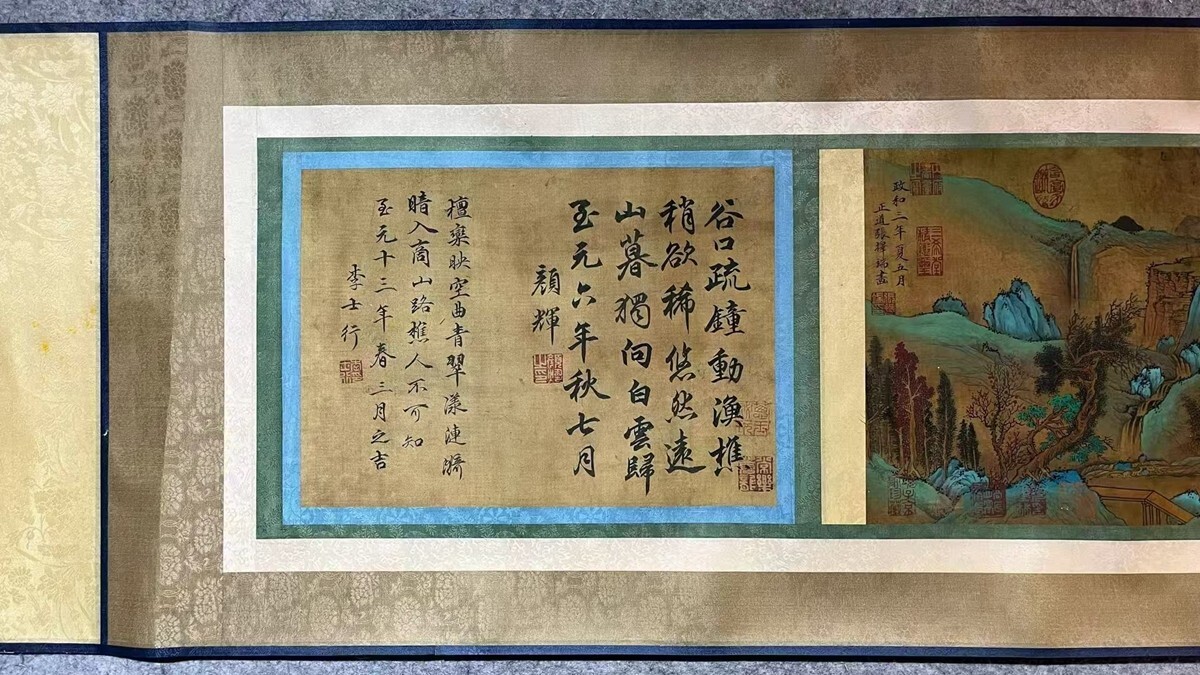 政和三年夏五月
正道張擇端畫
谷口疏鐘動漁樵
稍欲稀悠然遠
山暮獨向白雲歸
至元六年秋七月
顏輝
檀欒映空曲青翠漾漣漪
暗入商山路樵人不可知
至元十三年春三月之吉
李士行